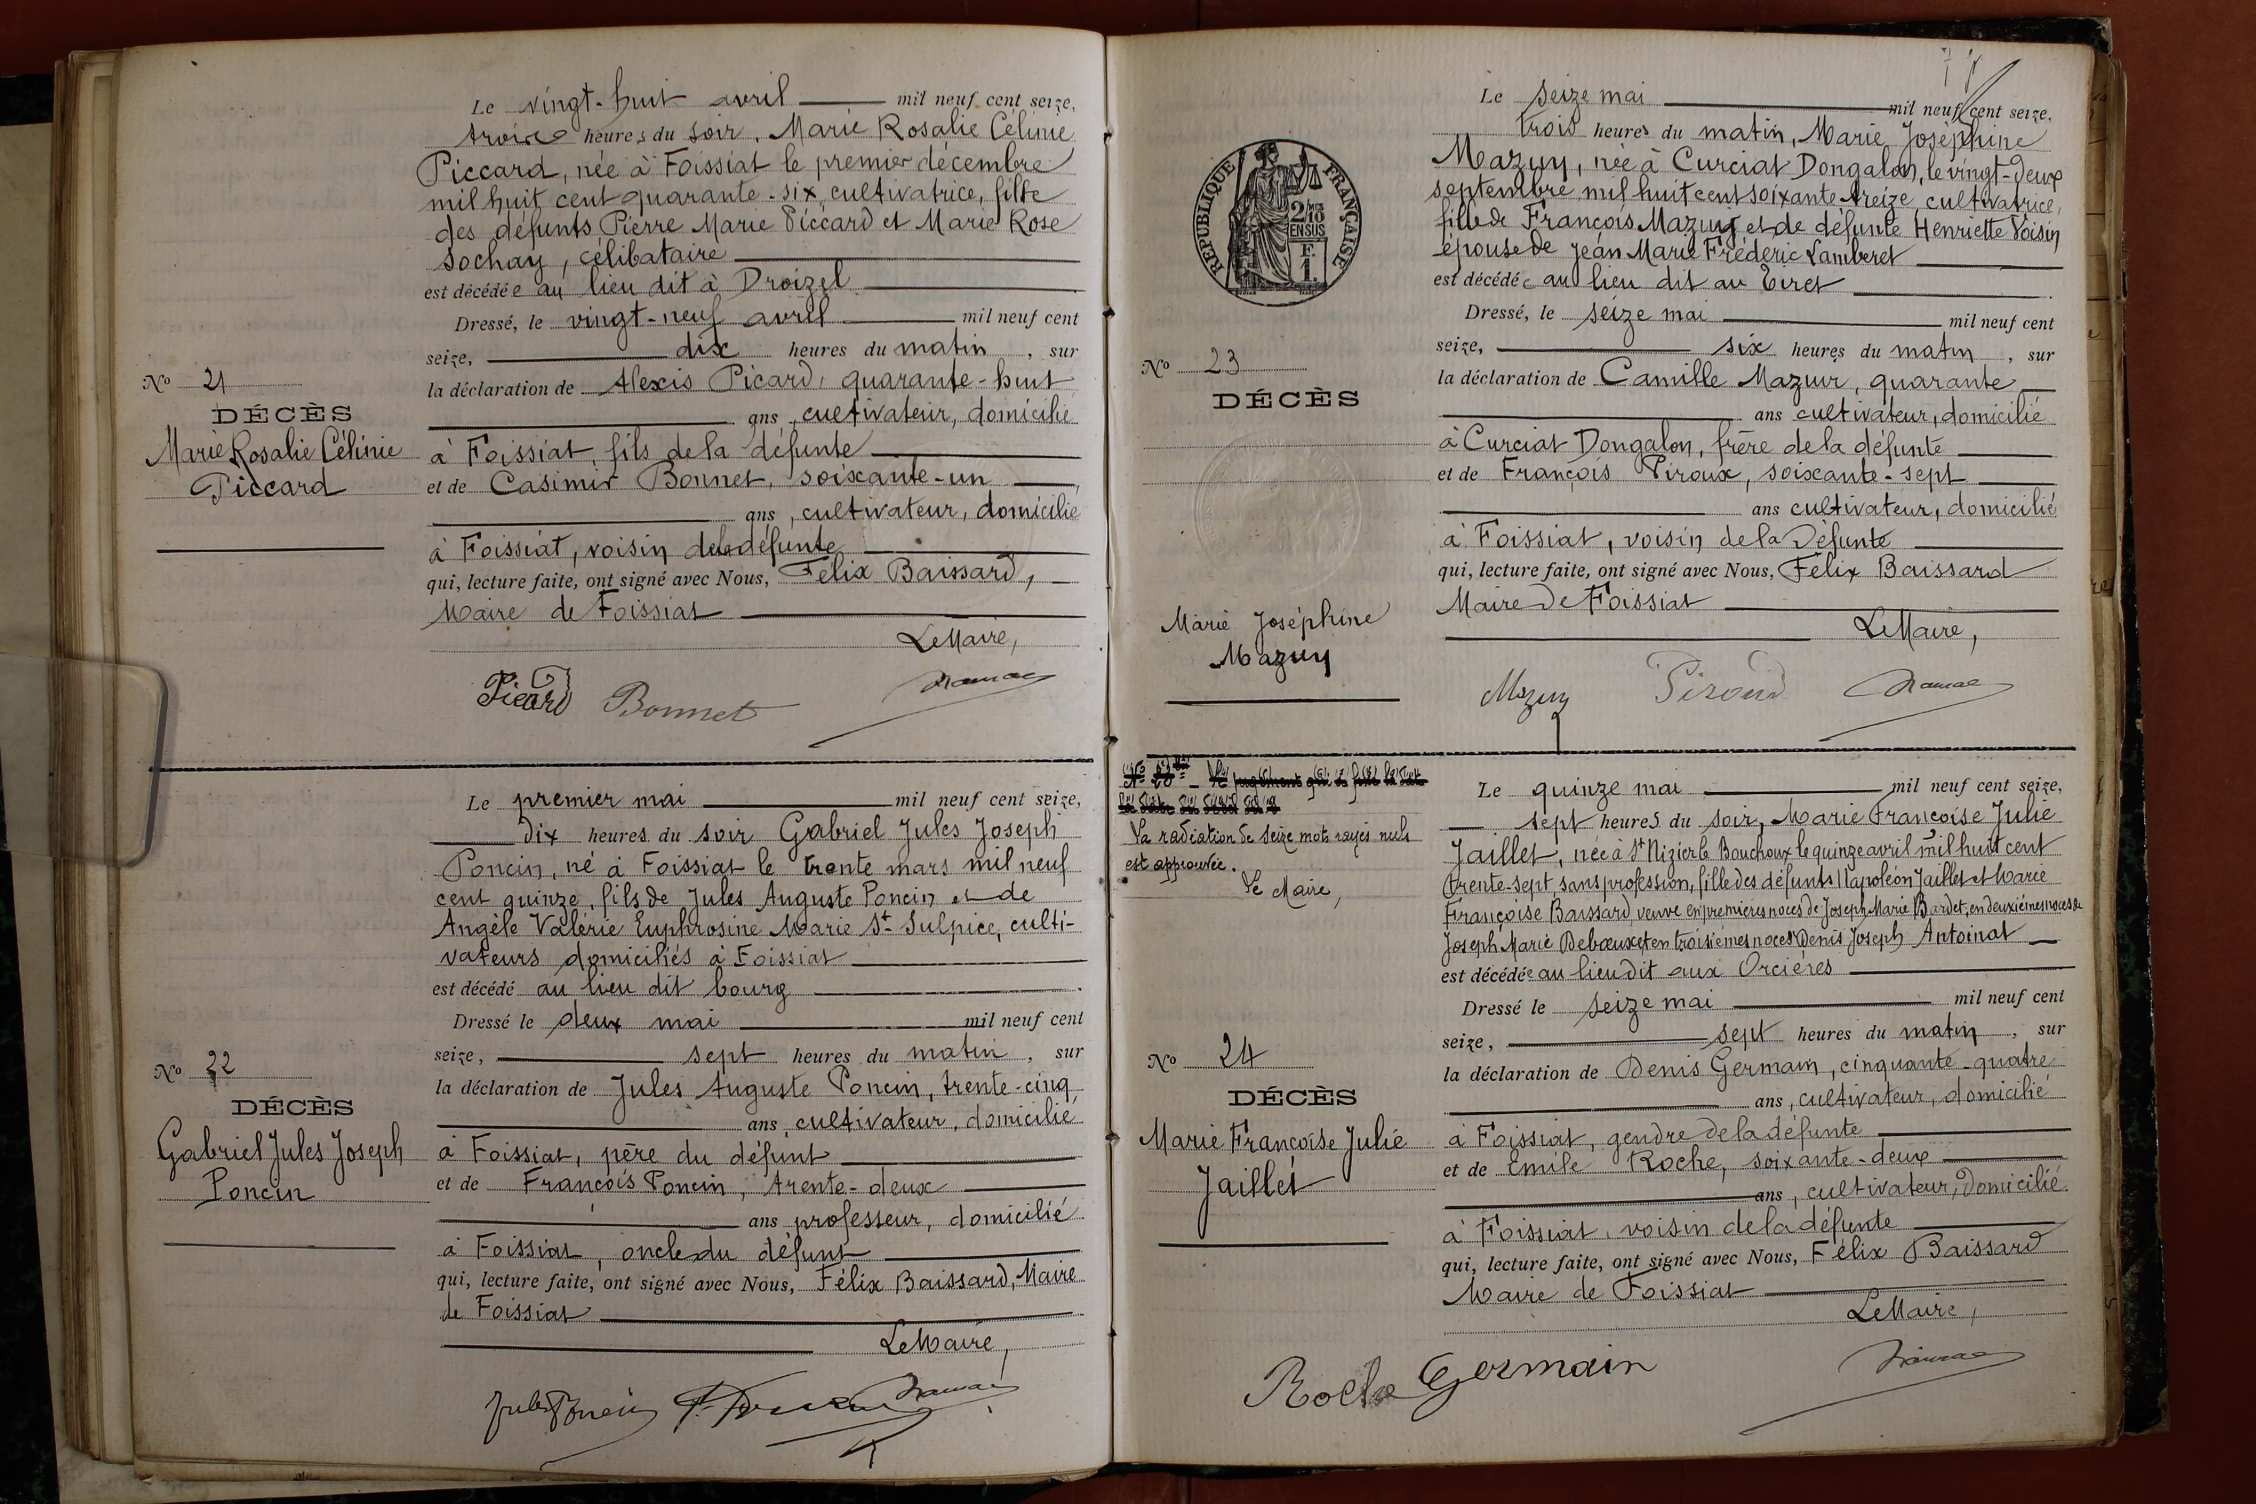 Le vingt-huit avril mil neuf cent seize,
heures du soir, Marie Rosalie Célinie
Piccard, née à Foissiat le premier décembre
mil huit cent quarante-six, cultivatrice, fille
des défunts Pierre Marie Piccard et Marie Rose
Sochay, célibataire
est décédée au lieu dit à Droizel
Dressé, le vingt-neuf avril mil neuf cent
seize, dix heures du matin, sur
la déclaration de Alexis Picard, quarante-huit
ans, cultivateur, domicilié
à Foissiat, fils de la défunte
et de Casimir Bonnet, soixante-un
ans, cultivateur, domicilié
à Foissiat, voisin de la défunte
qui, lecture faite, ont signé avec Nous, Félix Baissard,
Maire de Foissiat
Le Maire,
Picard Bonnet
No 21
DÉCÈS
Marie Rosalie Célinie
Piccard
Le premier mai mil neuf cent seize,
dix heures du soir Gabriel Jules Joseph
Poncin, né à Foissiat le trente mars mil neuf
cent quinze, fils de Jules Auguste Poncin et de
Angèle Valérie Euphrosine Marie St Sulpice, culti-
vateurs domiciliés à Foissiat
est décédé au lieu dit bourg
Dressé le deux mai mil neuf cent
seize, sept heures du matin, sur
la déclaration de Jules Auguste Poncin, trente-cinq
ans, cultivateur, domicilié
à Foissiat, père du défunt
et de François Poncin, trente-deux
ans professeur, domicilié
à Foissiat, oncle du défunt
qui, lecture faite, ont signé avec Nous, Félix Baissard, Maire
de Foissiat
Le Maire,
Jules Poncin
No 22
DÉCÈS
Gabriel Jules Joseph
Poncin
RÉPUBLIQUE FRANÇAISE
2/10
EN SUS
F.
1.
Le seize mai mil neuf cent seize,
trois heures du matin, Marie Joséphine
Mazuy, née à Curciat Dongalon, le vingt-deux
septembre mil huit cent soixante-treize, cultivatrice,
fille de François Mazuy et de défunte Henriette Voisin
épouse de Jean Marie Fréderic Lamberet
est décédée au lieu dit au Tiret
Dressé, le seize mai mil neuf cent
seize, six heures du matin, sur
la déclaration de Camille Mazuir, quarante
ans cultivateur, domicilié
à Curciat Dongalon, frère de la défunte
et de François Piroux, soixante-sept
ans cultivateur, domicilié
à Foissiat, voisin de la défunte
qui, lecture faite, ont signé avec Nous, Félix Baissard
Maire de Foissiat
Le Maire,
Mazuy Piroud
No 23
DÉCÈS
Marie Joséphine
Mazuy
La radiation de seize mots rayés nuls
est approuvée.
Le Maire,
Le quinze mai mil neuf cent seize,
sept heures du soir, Marie Françoise Julie
Jaillet, née à St Nizier le Bouchoux le quinze avril mil huit cent
trente-sept, sans profession, fille des défunts Napoléon Jaillet et Marie
Françoise Baissard, veuve en premières noces de Joseph Marie Bardet, en deuxièmes noces de
Joseph Marie Debœux et en troisièmes noces Denis Joseph Antoinat
est décédée au lieu dit aux Orcières
Dressé le seize mai mil neuf cent
seize, sept heures du matin, sur
la déclaration de Denis Germain, cinquante-quatre
ans, cultivateur, domicilié
à Foissiat, gendre de la défunte
et de Emile Roche, soixante-deux
ans, cultivateur, domicilié
à Foissiat, voisin de la défunte
qui, lecture faite, ont signé avec Nous, Félix Baissard
Maire de Foissiat
Le Maire,
Roche Germain
No 24
DÉCÈS
Marie Françoise Julie
Jaillet